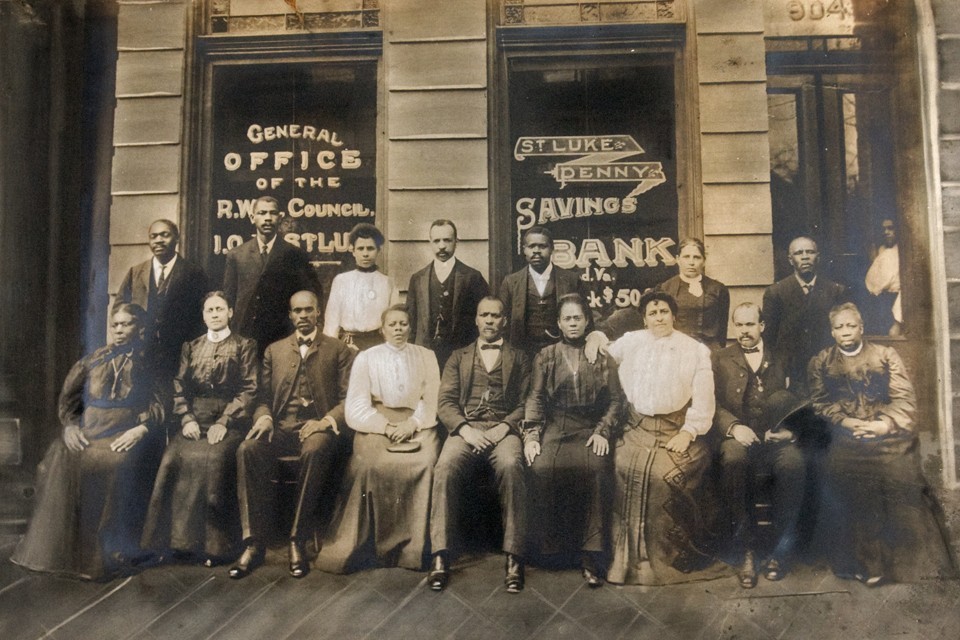 GENERAL
OFFICE
OF THE
R.W. COUNCIL.
I.O. ST LU
ST LUKE
PENNY
SAVINGS
BANK
d.Va.
k $50
904